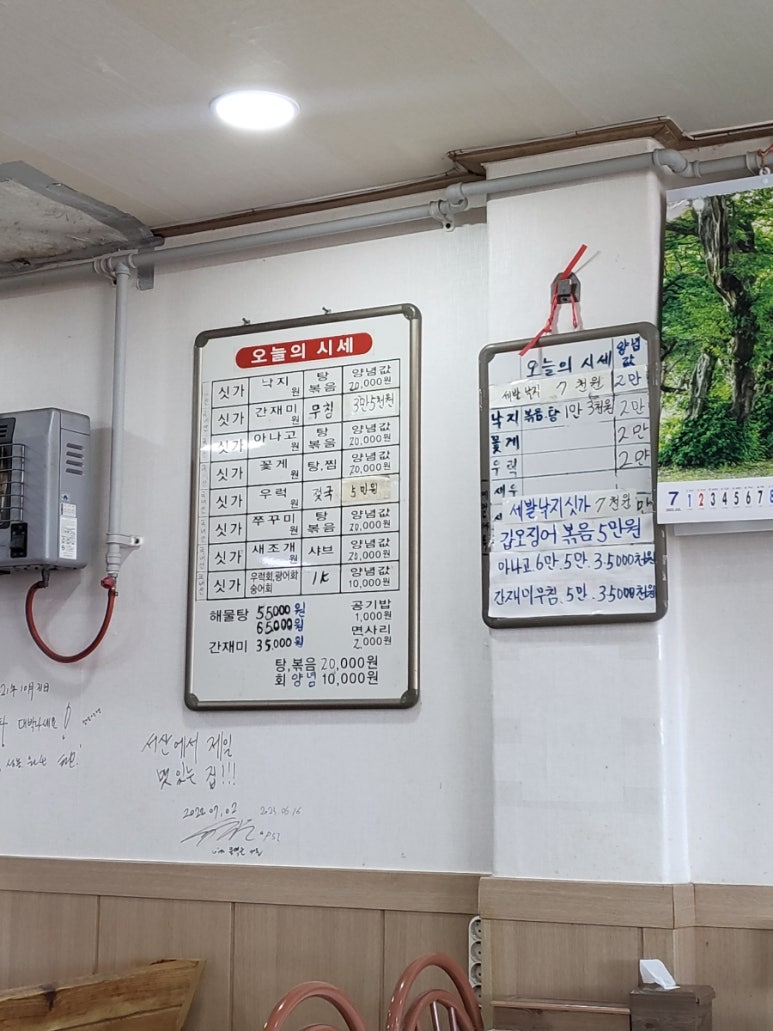 오늘의 시세
싯가 낙지 원 탕 볶음 양념값 20,000원
싯가 간재미 원 무침 3만5천원
싯가 아나고 원 탕 볶음 양념값 20,000원
싯가 꽃게 원 탕,찜 양념값 20,000원
싯가 우럭 원 겆국 5만원
싯가 쭈꾸미 원 탕 볶음 양념값 20,000원
싯가 새조개 원 샤브 양념값 20,000원
싯가 우럭회,광어회 숭어회 1K 양념값 10,000원
해물탕 55000원
65000원
간재미 35,000원
공기밥
1,000원
면사리
2,000원
탕,볶음 20,000원
회 양념 10,000원
오늘의 시세 양념값
세발낙지 7천원 2만
낙지 볶음.탕 1만 3천원 2만
꽃게 2만
우럭 2만
새우
세발낙지싯가 7천원
갑오징어 볶음 5만원
아나고 6만.5만.35000천원
간재미무침.5만.35000원
7 1 2 3 4 5 6 7 8
서산에서 제일
맛있는 집!!!
2022.07.02